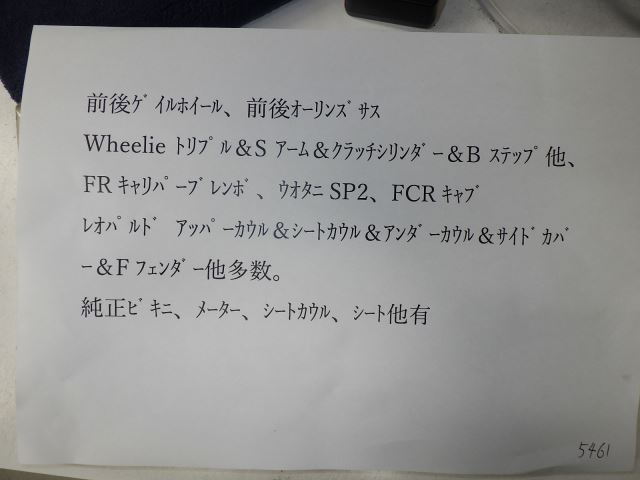 前後ｹﾞｲﾙﾎｲｰﾙ、前後ｵｰﾘﾝｽﾞｻｽ
Wheelie ﾄﾘﾌﾟﾙ＆S ｱｰﾑ＆ｸﾗｯﾁｼﾘﾝﾀﾞｰ＆B ｽﾃｯﾌﾟ他、
FR ｷｬﾘﾊﾟｰﾌﾞﾚﾝﾎﾞ、ｳｵﾀﾆ SP2、FCR ｷｬﾌﾞ
ﾚｵﾊﾟﾙﾄﾞ ｱｯﾊﾟｰｶｳﾙ＆ｼｰﾄｶｳﾙ＆ｱﾝﾀﾞｰｶｳﾙ＆ｻｲﾄﾞｶﾊﾞ
ｰ＆F ﾌｪﾝﾀﾞｰ他多数。
純正ﾋﾞｷﾆ、ﾒｰﾀｰ、ｼｰﾄｶｳﾙ、ｼｰﾄ他有
5461